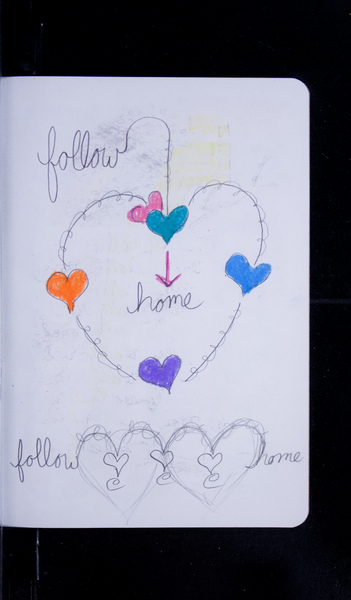 follow
home
follow home